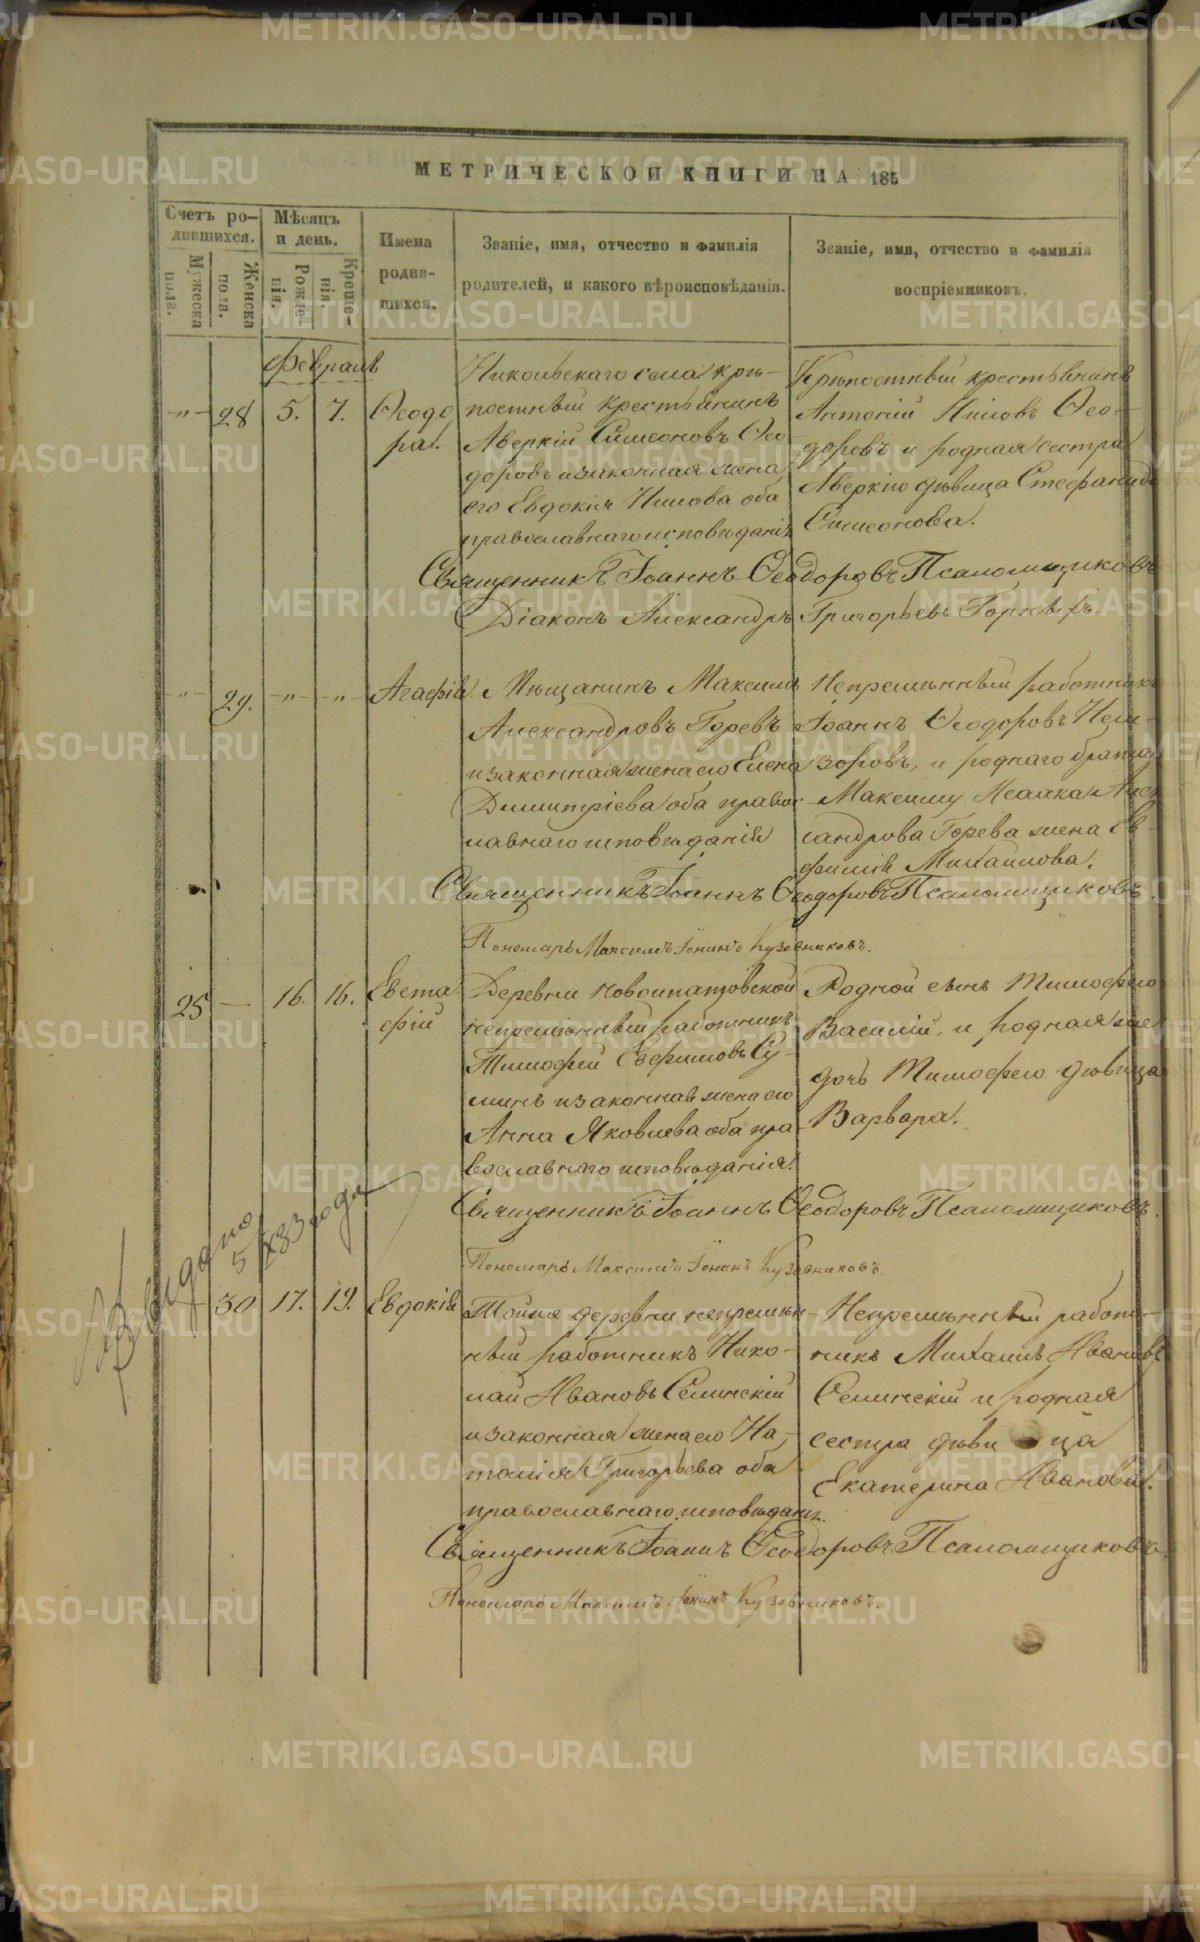 МЕТРИЧЕСКОЙ КНИГИ НА 185
Счетъ ро-
дившихся.
Мѣсяцъ
и день.
Имена
родив-
шихся.
Званіе, имя, отчество и фамилія
родителей, и какого вѣроисповѣданія.
Званіе, имя, отчество и фамилія
воспріемниковъ.
Мужеска
пола.
Женска
пола.
Рожде-
нія.
Креще-
нія.
Февраль
-„- 28 5. 7. Ѳеодо
ра.
Никольскаго села крѣ-
постный крестьянинъ
Аверкій Симеоновъ Ѳео
доровъ и законная жена
его Евдокія Нилова оба
православнаго исповѣданія
Крѣпостный крестьянинъ
Антоній Ниловъ Ѳео-
доровъ и родная сестра
Аверкію дѣвица Стефанида
Симеонова.
Священникъ Іоаннъ Ѳеодоровъ Псаломщиковъ
Діаконъ Александръ Григорьевъ Горныхъ.
-„- 29. -„- -„- Агафія
Мѣщанинъ Максимъ
Александровъ Горевъ
и законная жена его Елена
Димитріева оба правос
лавнаго исповѣданія
Непремѣнный работникъ
Іоаннъ Ѳеодоровъ Нем-
зоровъ, и роднаго брата
Максиму, Исаака Алек
сандрова Горева жена Ев-
фимія Михайлова.
Священникъ Іоаннъ Ѳеодоровъ Псаломщиковъ
Пономарь Максимъ Іонинъ Кузовниковъ.
25 — 16. 16. Евста
фій
Деревни Новоипатовской
непремѣнный работникъ
Тимофей Евфимовъ Су-
минъ и законная жена его
Анна Яковлева оба пра-
вославнаго исповѣданія.
Родной сынъ Тимофею
Василій, и родная же
дочь Тимофею дѣвица
Варвара.
Священникъ Іоаннъ Ѳеодоровъ Псаломщиковъ.
Пономарь Максимъ Іонинъ Кузовниковъ.
Выдано
5 83 года
30 17. 19. Евдокія
Тойже деревни непремѣн
ный работникъ Нико-
лай Ивановъ Селинскій
и законная жена его На-
талія Григорьева оба
православнаго исповѣдан.
Непремѣнный работ-
никъ Михаилъ Ивановъ
Селинскій и родная
сестра дѣви ца
Екатерина Иванова.
Священникъ Іоаннъ Ѳеодоровъ Псаломщиковъ.
Пономарь Максимъ Іонинъ Кузовниковъ.
METRIKI.GASO-URAL.RU